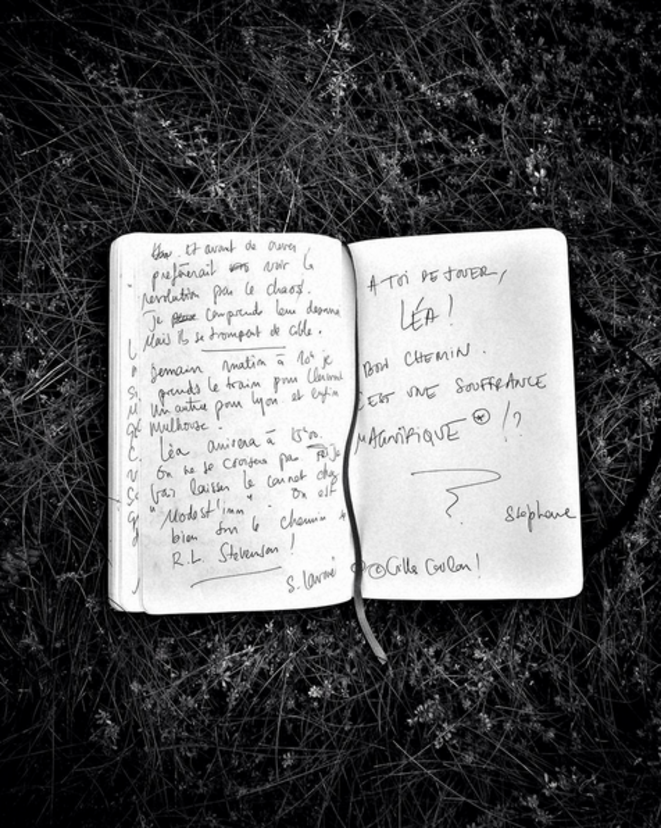 Et avant de crever,
préfèrerait voir la
revolution pas le chaos!
Je comprends leur
Mais ils se trompent de cible.
Demain matin à 10h je
prends le train pour Clermont
un autre pour Lyon et enfin
Mulhouse.
Léa arrivera à 15h00.
On ne se croisera pas. Je
vais laisser le carnet chez
"Modest'inn". On est
bien sur le chemin *
R.L. Stevenson!
S. Lavoué
A TOI DE JOUER,
LÉA!
BON CHEMIN.
C'EST UNE SOUFFRANCE
MAGNIFIQUE * !?
Stéphane
* Gilles Coulon!